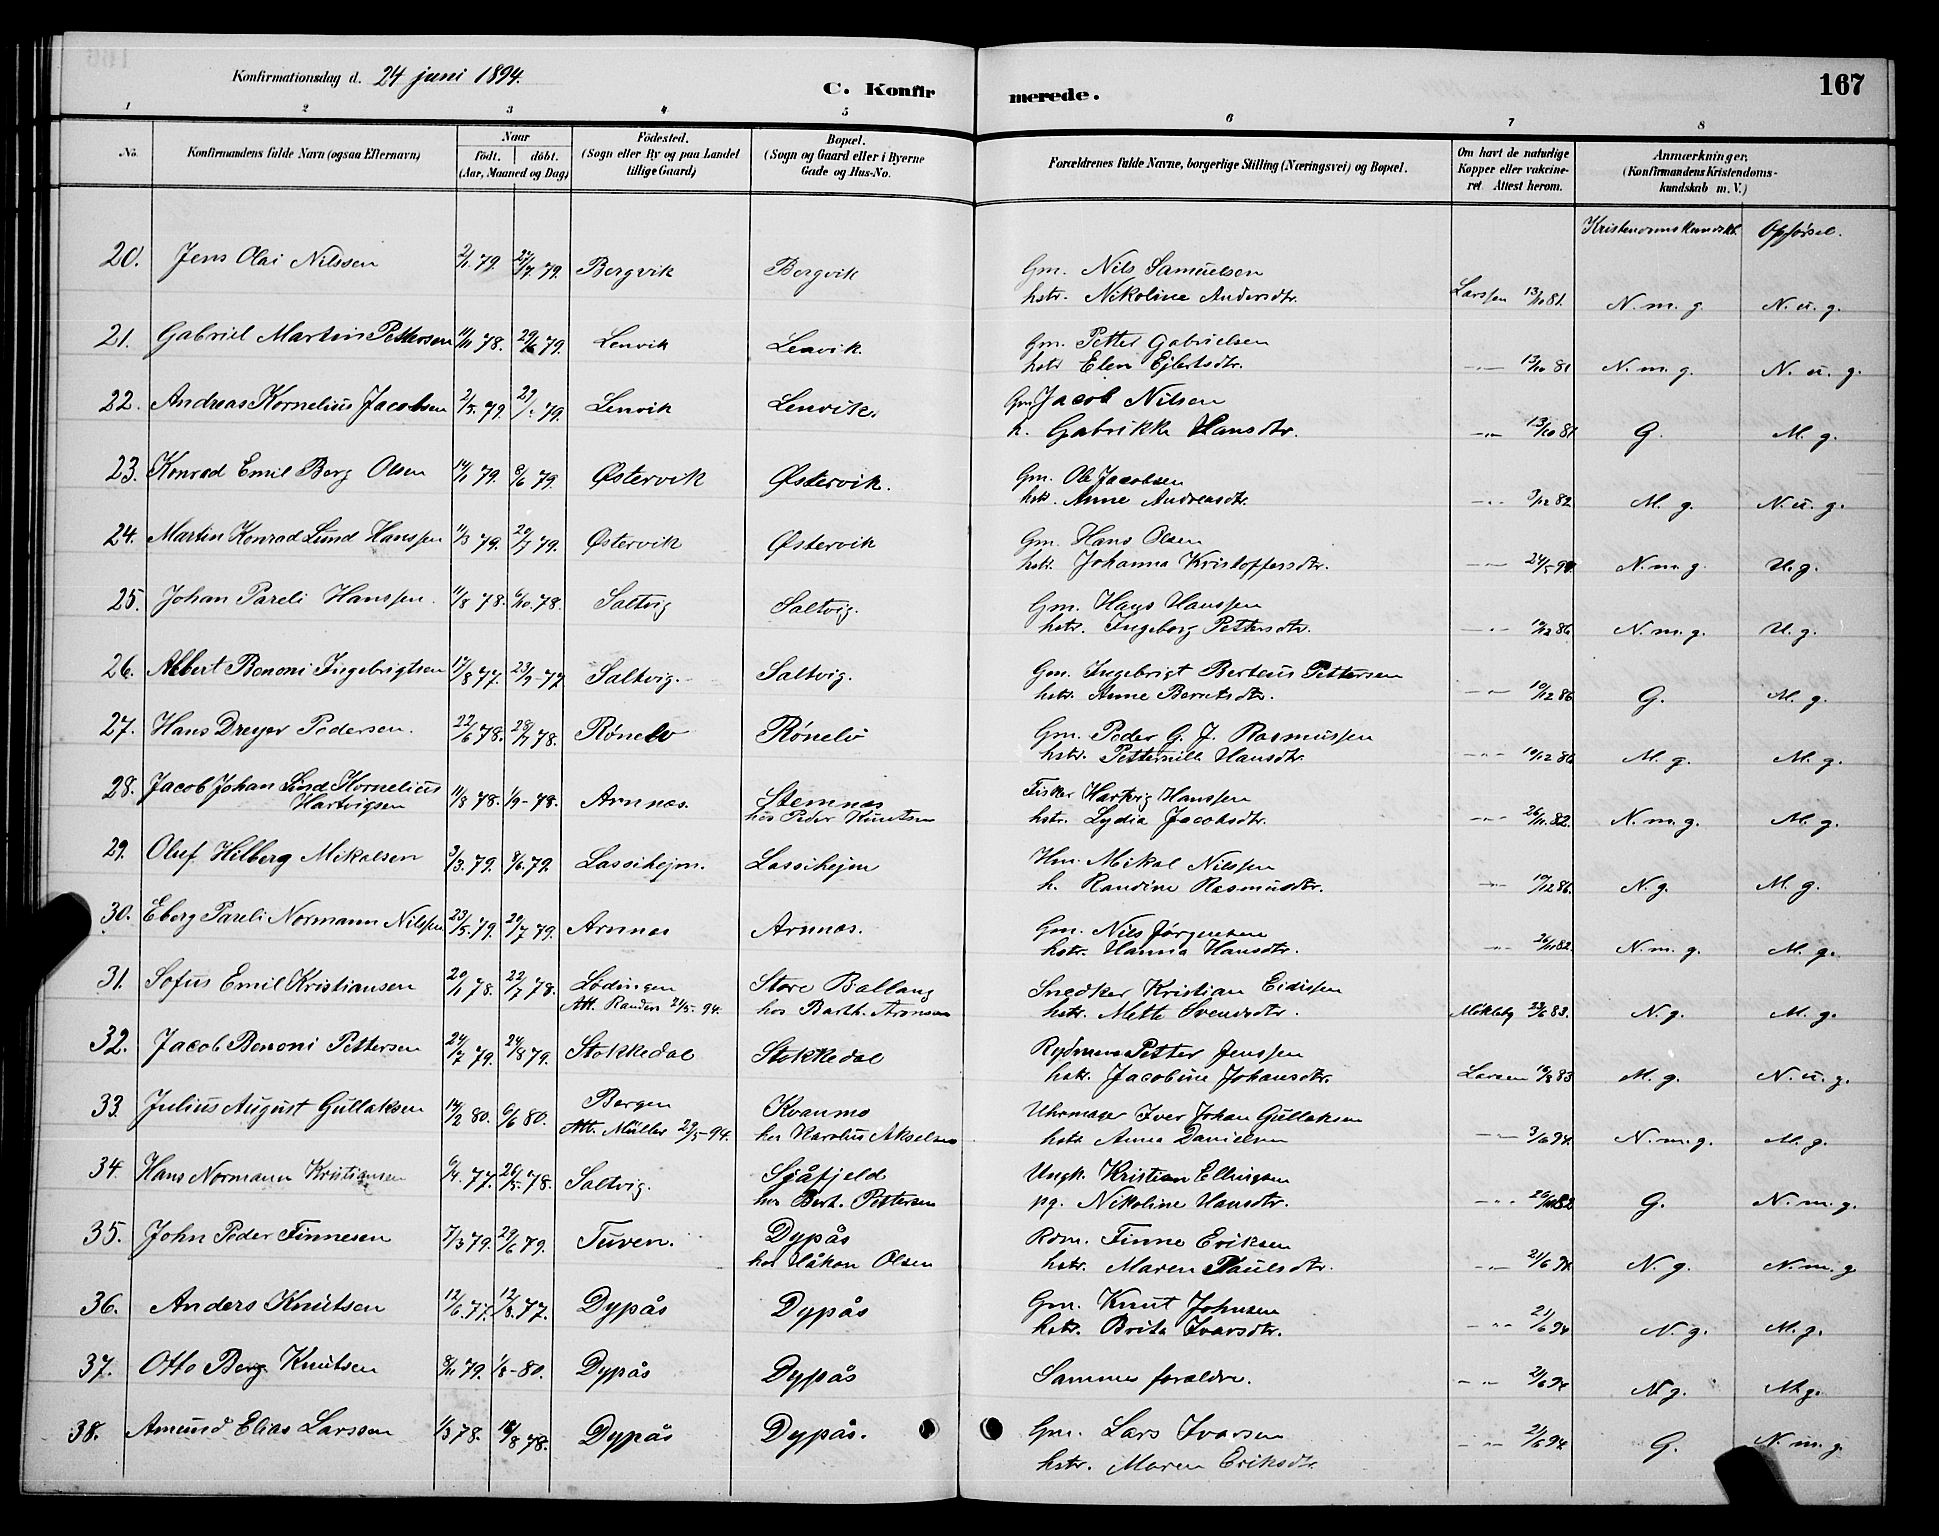 Konfirmationsdag d. 24 juni 1894.
C. Konfirmerede.
167
1 2 3 4 5 6 7 8
No. Konfirmandens fulde Navn (ogsaa Efternavn) Naar födt. döbt. (Aar, Maaned og Dag) Födested. (Sogn eller By og paa Landet tillige Gaard) Bopæl. (Sogn og Gaard eller i Byerne Gade og Hus-No. Forældrenes fulde Navne, borgerlige Stilling (Næringsvei) og Bopæl. Om havt de naturlige Kopper eller vakcineret. Attest herom. Anmærkninger. (Konfirmandens Kristendomskundskab m. V.)
Kristendomskundskb. Opførsel.
20. Jens Olai Nilssen 79. 79. Bergvik Bergvik Gm. Nils Samuelsen
hstr. Nikoline Andersdtr. Larssen 13/10 81. N. m. g. N. u. g.
21. Gabriel Martin Pettersen 11/11 78. 29/6 79. Lenvik Lenvik. Gm. Petter Gabrielsen
hstr Elen Ejlertsdtr. -"- 13/10 81 N. m. g. N. u. g.
22. Andreas Kornelius Jacobsen 2/5. 79. 79. Lenvik Lenvik. Gm. Jacob Nilsen
h. Gabrikke Hansdtr. -"- 13/10 81 G. M. g.
23. Konrad Emil Berg Olsen 14/1 79. 8/6 79. Østervik Østervik. Gm. Ole Jacobsen
hstr. Anne Andreasdtr. -"- 3/12 82 M. g. N. u. g.
24. Martin Konrad Lund Hanssen 11/3 79. 20/7 79. Østervik Østervik Gm. Hans Olsen
hstr. Johanna Kristoffersdtr. -"- 24/5 90 N. m. g. U. g.
25. Johan Pareli Hanssen. 11/8 78. 6/10. 78. Saltvig Saltvig. Gm. Hans Hanssen
hstr. Ingeborg Pettersdtr. -"- 10/12 86 N. m. g. U. g.
26. Albert Benoni Ingebrigtsen 17/8 77. 23/9-77 Saltvig. Saltvig. Gm. Ingebrigt Berteus Pettersen
hstr. Anne Berntsdtr. -"- 10/12 86 G. M. g.
27. Hans Dreyer Pedersen. 22/6 78. 28/7 78. Rønelv Rønelv Gm. Peder G. J. Rasmussen
hstr. Petternille Hansdtr. -"- 10/12 86 M. g. M. g.
28. Jacob Johan Lind Kornelius
Hartvigsen 11/8 78. 1/9-78. Arnnæs. Stemnæs
hos Peder Knutsen Fisker Hartvig Hanssen
hstr. Lydia Jacobsdtr. -"- 26/11. 82. N. m. g. M. g.
29. Oluf Hilberg Mikalsen 3/3. 79. 8/6. 79 Lassihejm. Lassihejm Hm. Mikal Nilssen
h. Randine Rasmusdtr. -"- 10/12 86. N. g. M. g.
30. Eberg Pareli Normann Nilssen 23/5. 79. 20/7 79. Arnnæs Arnnæs. Gm. Nils Jørgensen
hstr. Hanna Hansdtr. -"- 26/11 82. N. m. g. M. g.
31. Sofus Emil Kristiansen 20/1 78. 22/7 78. Lødingen Store Ballang Snedker Kristian Eidissen
Att. Randers 21/5-94. hos Barth. Arnsen hstr. Mette Svendsdtr. Mikleby 23/6 83. N. g. M. g.
32. Jacob Benoni Pettersen 24/7 79. 24/8 79. Stokkedal Stokkedal Rydmm Petter Jenssen
hstr. Jacobine Johansdtr. Larsen 19/8 83 M. g. N. u. g.
33. Julius August Gullaksen 14/2 80. 6/6 80. Bergen Kvanmo Uhrmager Iver Johan Gullaksen
Att. Müller 29/5-94. hos Karolus Akselsen hstr Anna Danielsen -"- 3/6 94. N. m. g. M. g.
34. Hans Normann Kristiansen 6/4. 77. 26/5. 78. Saltvig. Sjåfjeld Ungk. Kristian Ellingsen
hos Bert. Pettersen pg. Nikoline Hansdtr. -"- 82 G. N. m. g.
35. John Peder Finnesen 7/3 79. 29/6 79. Tuven. Dypås Rdm. Finne Eriksen
hos Håkon Olsen hstr. Maren Paulsdtr. -"- 21/6 94 N. g. N. m. g
36. Anders Knutsen 12/6. 77. 12/8. 77. Dypås Dypås Gm. Knut Johnsen
hstr. Brita Ivarsdtr. -"- 21/6 94 N. g. M. g.
37. Otto Berg Knutsen 8/11 79. 80. Dypås Dypås Samme forældre. -"- 21/6 94 N g. M g.
38. Amund Elias Larssen 1/3 78. 18/8 78. Dypås Dypås. Gm. Lars Ivarsen -"- 21/6 94. G. N. m. g.
hstr. Maren Eriksdtr.